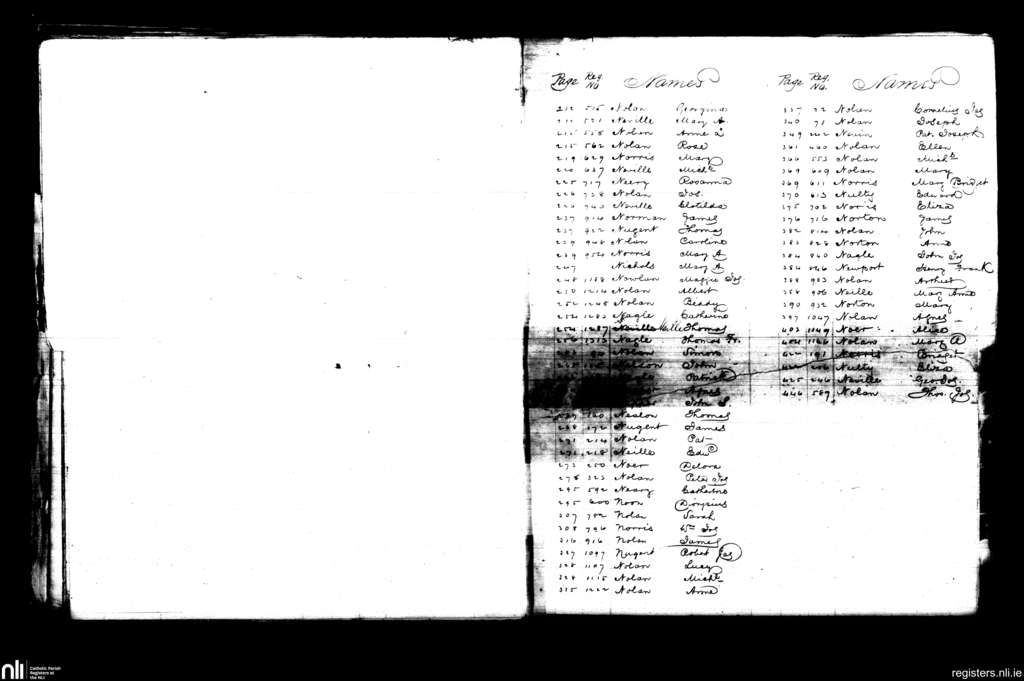 Page Reg. No. Names
212 515 Nolan Georgina
521 Neville Mary A.
215 558 Nolan Annie
215 562 Nolan Rose
219 629 Norris Mary
220 637 Neville Michl
225 717 Neery Rosanna
226 728 Nolan Jos.
226 740 Neville Clotilda
237 914 Norman James
237 922 Nugent Thomas
239 948 Nolan Caroline
239 952 Norris Mary A
247 Nichols Mary A
248 1188 Nowlan Maggie Jos
250 1214 Nolan Albert
252 1248 Nolan Biddy
254 1283 Nagle Catherine
254 1287 Neville Thomas
256 1313 Nagle Thomas Fr.
Nolan Simon
John
Patrick
Agnes
John S.
Nealon Thomas
268 172 Nugent James
271 214 Nolan Pat
271 218 Neille Edwd
273 250 Noer Delora
278 323 Nolan Peter Jos
295 592 Neary Catherine
295 600 Noon Dionysius
307 782 Nolan Sarah
308 796 Norris Wm Jos
316 916 Nolan James
327 1097 Nugent Robert Jos
328 1107 Nolan Lucy
328 1115 Nolan Michl
335 1222 Nolan Anne
Page Reg. No. Names
337 22 Nolan Cornelius Jos
340 71 Nolan Joseph
349 202 Pat. Joseph
361 440 Nolan Ellen
366 553 Nolan Michl
369 609 Nolan Mary
369 611 Norris Mary Bridget
370 613 Nulty Edward
375 702 Norris Eliza
376 716 Norton James
382 814 Nolan John
383 828 Norton Anne
384 840 Nagle John Jos
384 846 Newport Henry Frank
388 903 Nolan
388 908 Neille Mary Anne
390 932 Norton Mary
397 1047 Nolan Agnes
403 1149 Noer Alice
404 1166 Nolan Mary A
422 191 Norris Bridget
Nulty Eliza
425 246 Neville Geo Jos.
446 589 Nolan Thos. Jos.
nli Catholic Parish Registers at the NLI
registers.nli.ie